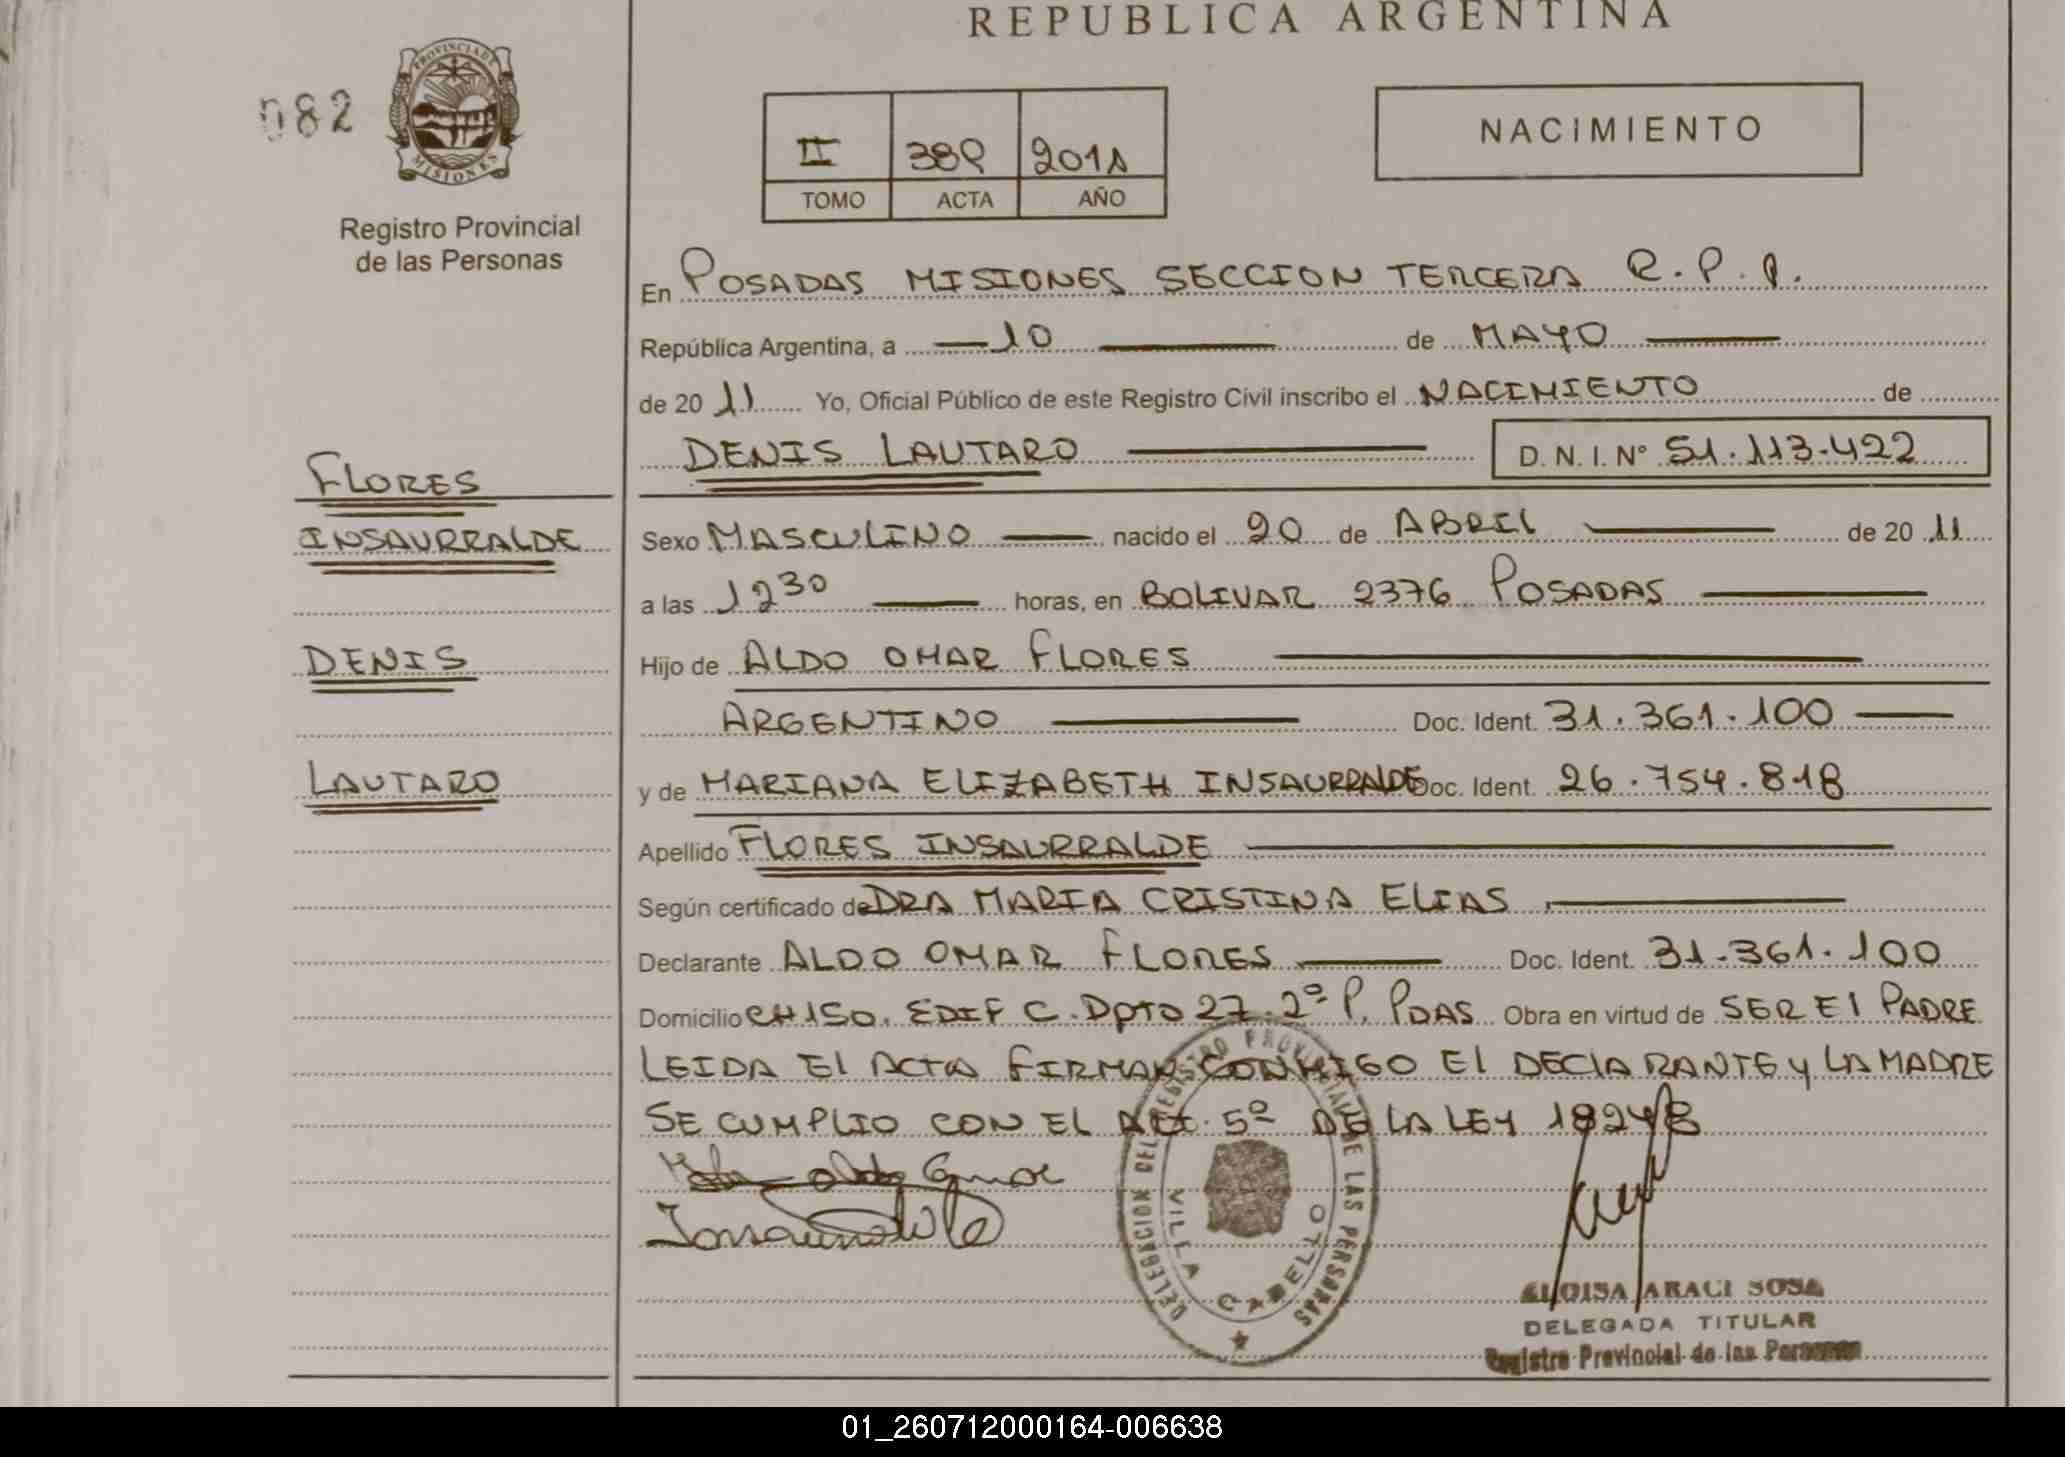 REPUBLICA ARGENTINA
082
PROVINCIA DE
MISIONES
Registro Provincial
de las Personas
II 389 2011
TOMO ACTA AÑO
NACIMIENTO
En POSADAS MISIONES SECCION TERCERA R.P.P.
República Argentina, a 10 de MAYO
de 20 11 Yo, Oficial Público de este Registro Civil inscribo el NACIMIENTO de
DENIS LAUTARO D. N. I. N° 51.113.422
FLORES
INSAURRALDE
DENIS
LAUTARO
Sexo MASCULINO nacido el 20 de ABRIL de 20 11
a las 12 30 horas, en BOLIVAR 2376 POSADAS
Hijo de ALDO OMAR FLORES
ARGENTINO Doc. Ident. 31.361.100
y de MARIANA ELIZABETH INSAURRALDE Doc. Ident. 26.754.818
Apellido FLORES INSAURRALDE
Según certificado de DRA MARIA CRISTINA ELIAS
Declarante ALDO OMAR FLORES Doc. Ident. 31.361.100
Domicilio CH 150. EDIF C. Dpto 27. 2º P. PDAS Obra en virtud de SER El PADRE
LEIDA El ACTA FIRMAN CONMIGO El DEClARANTE y LA MADRE
SE CUMPLIO CON EL Art. 5º DE LA LEY 18248
DELEGACION DEL REGISTRO PROVINCIAL DE LAS PERSONAS
VILLA CABELLO
ELOISA ARACI SOSA
DELEGADA TITULAR
Registro Provincial de las Personas
01_260712000164-006638